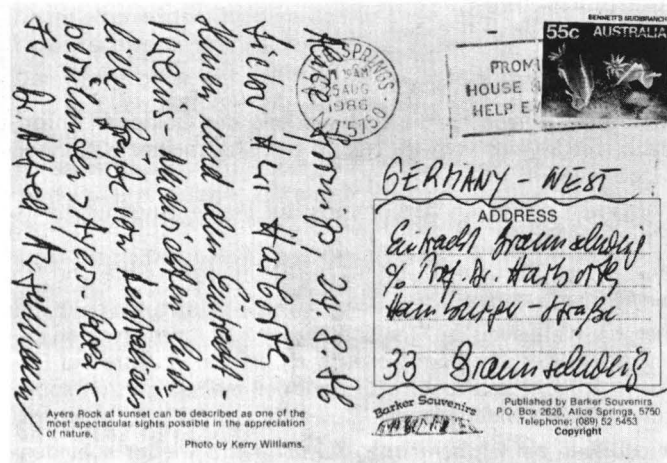 Alice Springs 24.8.86
Lieber Herr Harborth,
Ihnen und den Eintracht-
Vereins Nachrichten
liebe Grüße von Australiens
berühmten Ayers Rock -
Ihr Dr. Alfred
BENNETT'S NUDIBRANCH
55c AUSTRALIA
ALICE SPRINGS
AUG
1986
5750
PROM
HOUSE &
HELP
GERMANY - WEST
ADDRESS
Eintracht Braunschweig
% Prof. Dr. Harborth
Hamburger Straße
33 Braunschweig
Ayers Rock at sunset can be described as one of the
most spectacular sights possible in the appreciation
of nature.
Photo by Kerry Williams.
Barker Souvenirs
Published by Barker Souvenirs
P.O. Box 2626, Alice Springs, 5750
Telephone: (089) 52 5453
Copyright